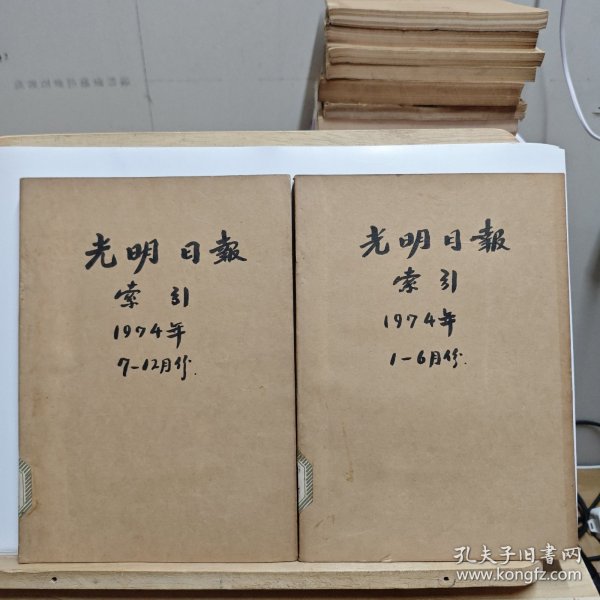 光明日報
索引
1974年
7-12月份.
光明日報
索引
1974年
1-6月份.
孔夫子旧书网
www.kongfz.com